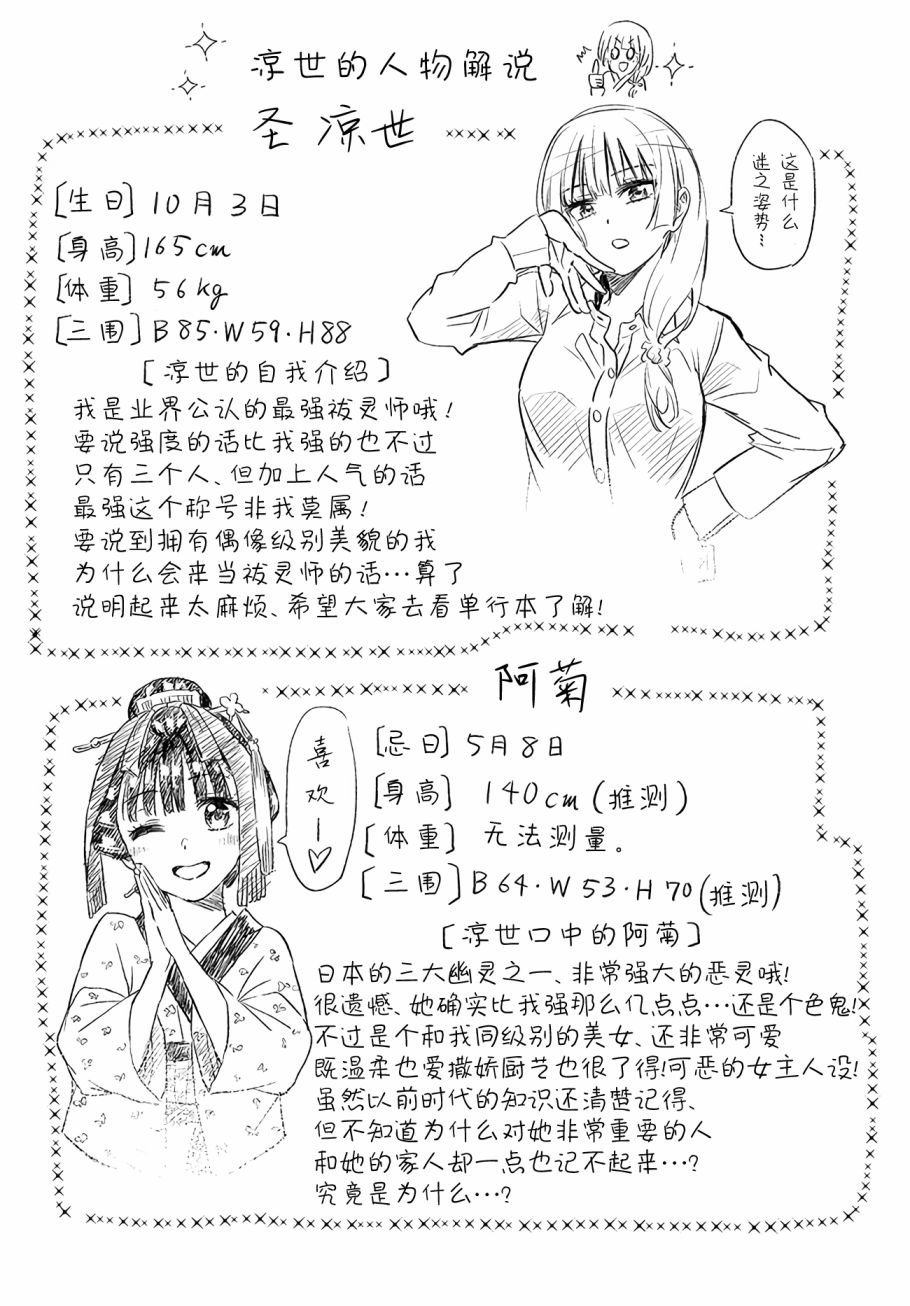 凉世的人物解说
圣 凉世
这是什么
迷之姿势…
[生日] 10月3日
[身高] 165cm
[体重] 56kg
[三围] B85·W59·H88
[凉世的自我介绍]
我是业界公认的最强祓灵师哦!
要说强度的话比我强的也不过
只有三个人、但加上人气的话
最强这个称号非我莫属!
要说到拥有偶像级别美貌的我
为什么会来当祓灵师的话…算了
说明起来太麻烦、希望大家去看单行本了解!
阿菊
喜欢—♡
[忌日] 5月8日
[身高] 140cm(推测)
[体重] 无法测量。
[三围] B64·W53·H70(推测)
[凉世口中的阿菊]
日本的三大幽灵之一、非常强大的恶灵哦!
很遗憾、她确实比我强那么亿点点…还是个色鬼!
不过是个和我同级别的美女、还非常可爱
既温柔也爱撒娇厨艺也很了得!可恶的女主人设!
虽然以前时代的知识还清楚记得、
但不知道为什么对她非常重要的人
和她的家人却一点也记不起来…?
究竟是为什么…?